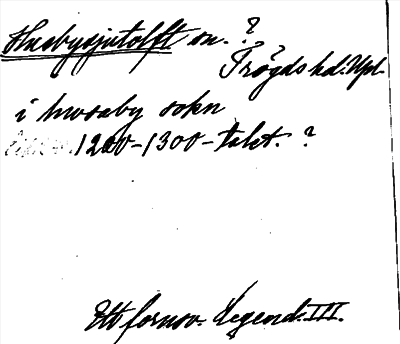 Husbysjutolft sn. ?
Trögds hd. Upl.
i husaby sokn
1200-1300-talet. ?
Ett fornsv. Legend. III.